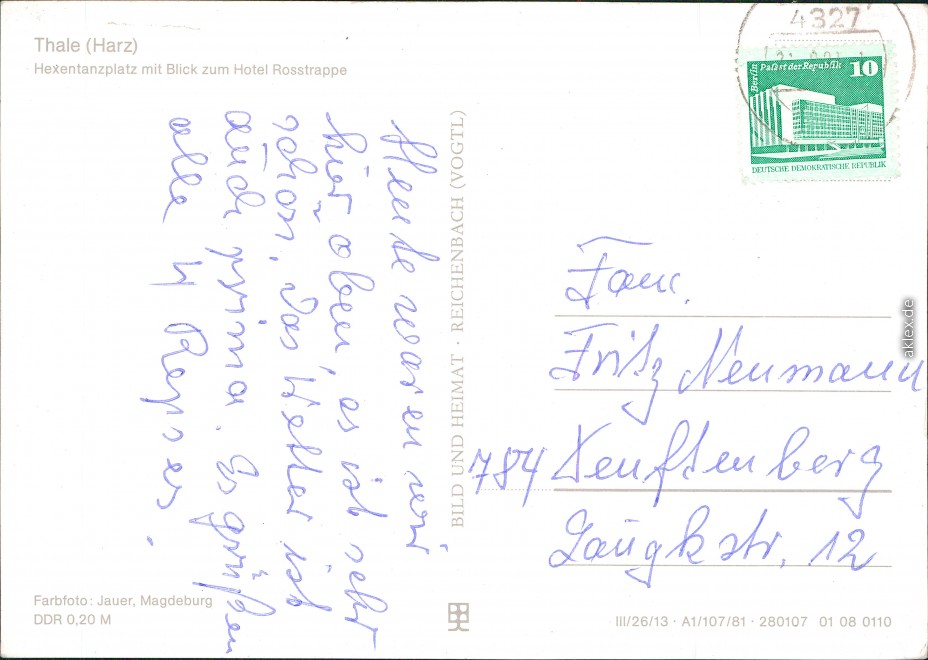 Thale (Harz)
Hexentanzplatz mit Blick zum Hotel Rosstrappe
Heute waren wir
hier oben, es ist sehr
schön, das Wetter ist
auch prima. Es grüßen
alle
BILD UND HEIMAT · REICHENBACH (VOGTL)
4327
Berlin Palast der Republik 10
DEUTSCHE DEMOKRATISCHE REPUBLIK
Fam.
Fritz Neumann
784 Senftenberg
Laugkstr. 12
Farbfoto: Jauer, Magdeburg
DDR 0,20 M
III/26/13 · A1/107/81 · 280107 01 08 0110
aklex.de